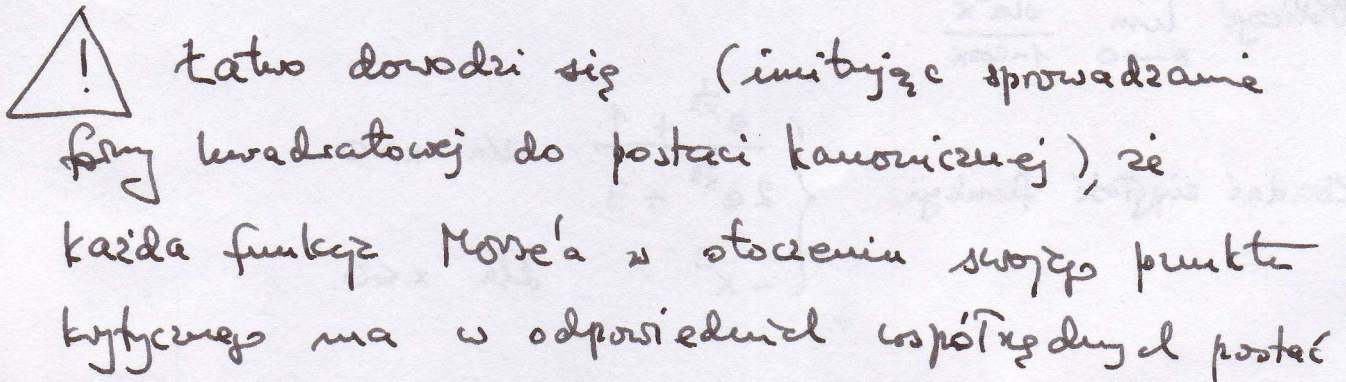 ! Łatwo dowodzi się (imitując sprowadzanie
formy kwadratowej do postaci kanonicznej), że
każda funkcja Morse'a w otoczeniu swojego punktu
krytycznego ma w odpowiednich współrzędnych postać